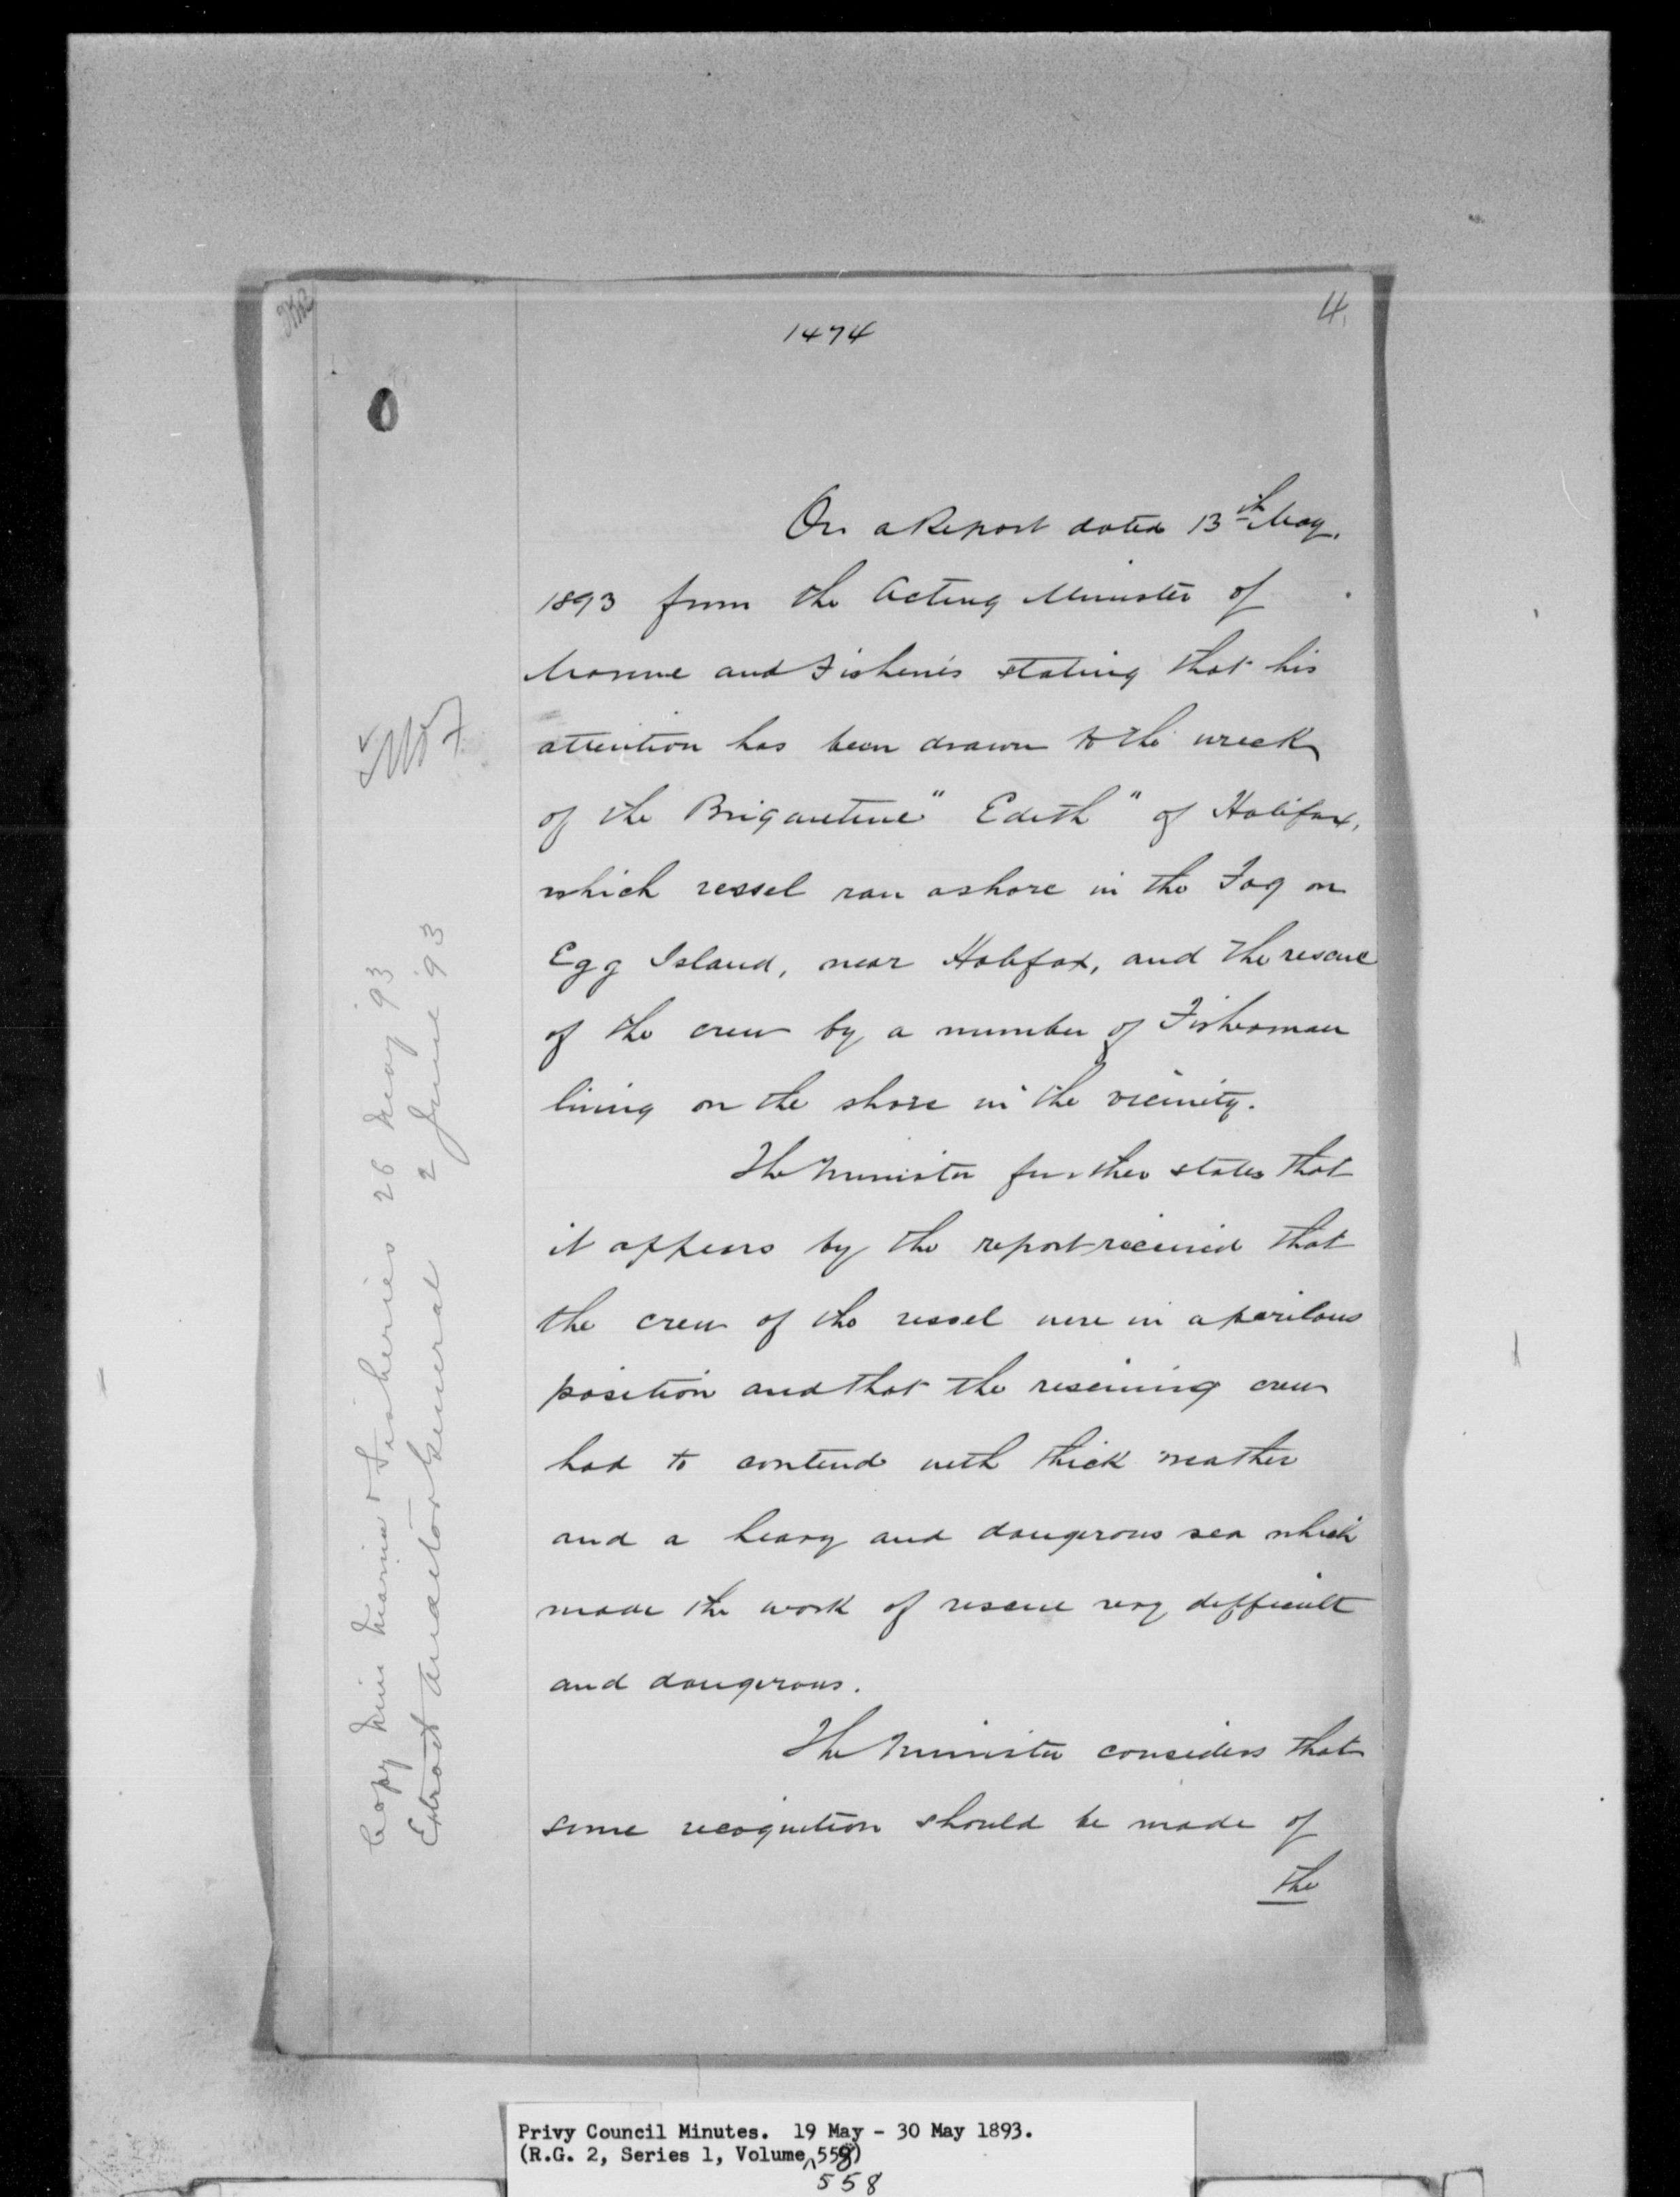 4.
1474
On a Report dated 13th May,
1893 from the Acting Minister of
Marine and Fisheries stating that his
attention has been drawn to the wreck
of the Brigantine "Edith" of Halifax,
which vessel ran ashore in the Fog on
Egg Island, near Halifax, and the rescue
of the crew by a number of Fisherman
living on the shore in the vicinity.
The Minister further states that
it appears by the report received that
the crew of the vessel were in a perilous
position and that the rescuing crew
had to contend with thick weather
and a heavy and dangerous sea which
made the work of rescue very difficult
and dangerous.
The Minister considers that
some recognition should be made of
the
Copy Min Marine & Fisheries 26 May '93
Extract Auditor General 2 June '93
Privy Council Minutes. 19 May - 30 May 1893.
(R.G. 2, Series 1, Volume 558)
558